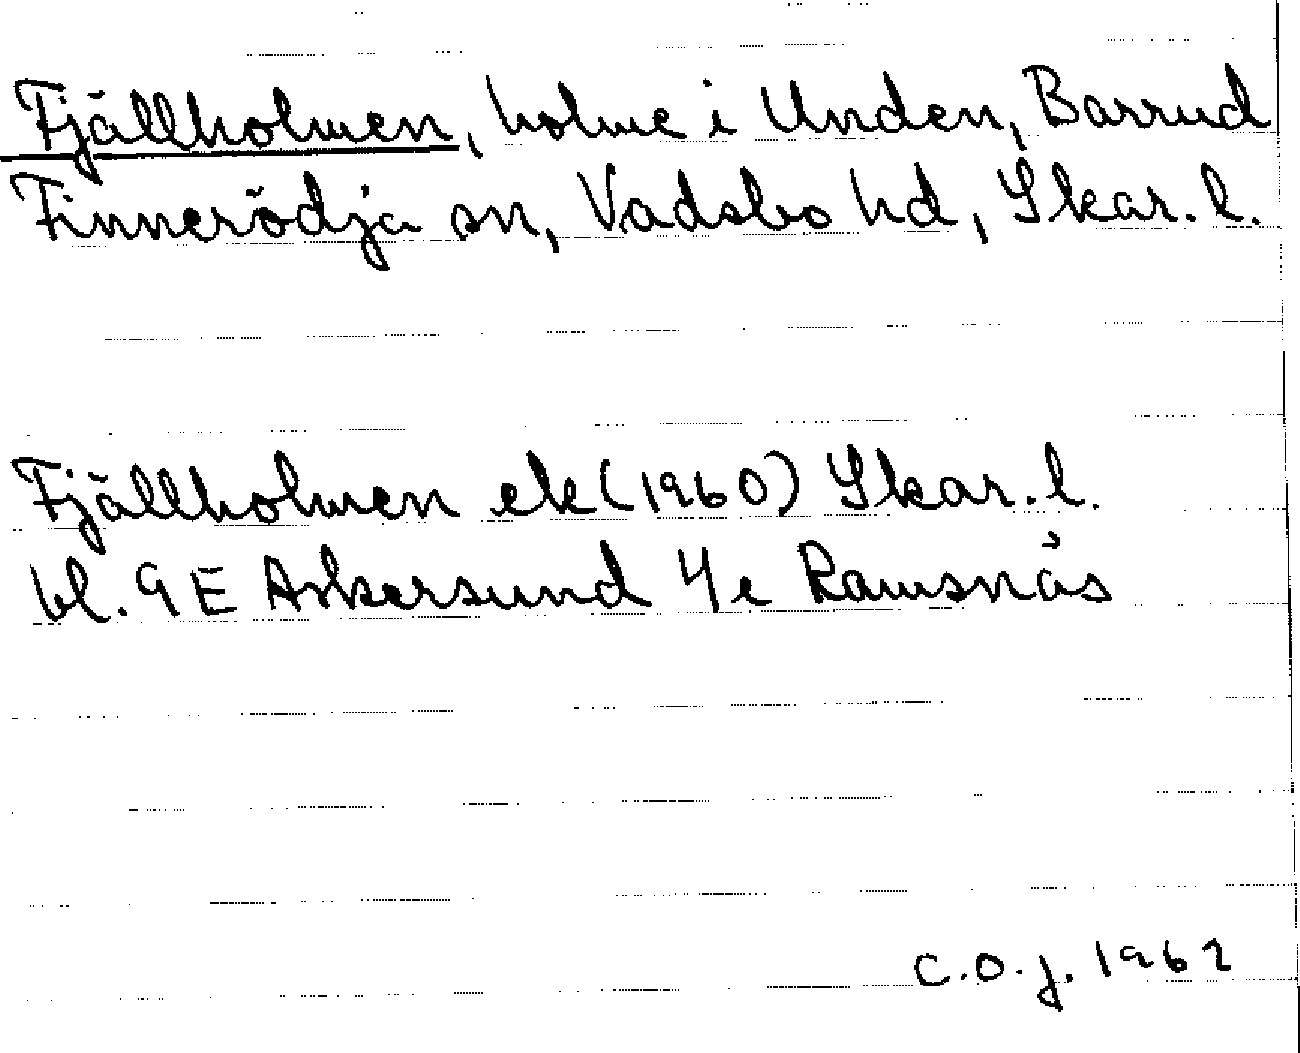 Fjällholmen, holme i Unden, Barrud
Finnerödja sn, Vadsbo hd, Skar. l.
Fjällholmen ek (1960) Skar. l.
bl. 9 E Askersund 4 e Ramsnäs
C.O.J. 1962